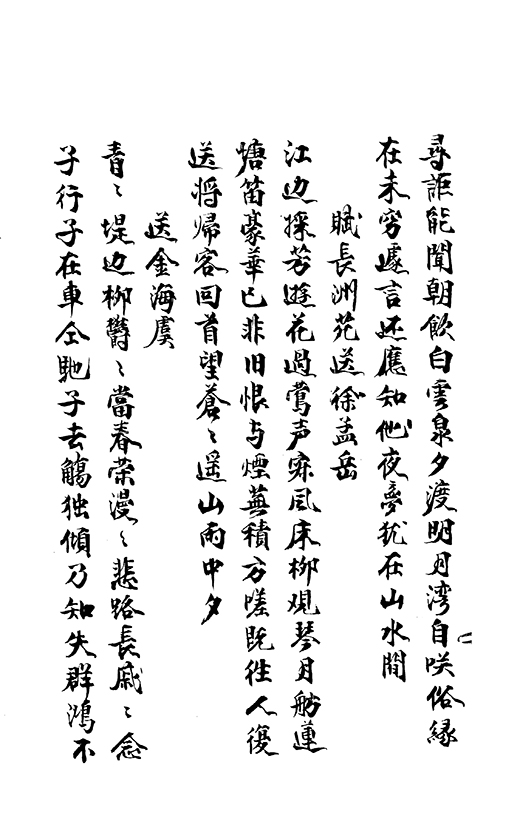 尋詎能聞朝飲白雲泉夕渡明月湾自咲俗縁
在未窮遽言还應知他夜夢犹在山水間
賦長洲苑送徐孟岳
江边採芳遊花過鶯声寂風床柳观琴月舫蓮
塘笛豪華已非旧恨与煙蕪積方嗟既往人復
送将帰客回首望蒼〻遥山雨中夕
送金海虞
青〻堤边柳欝〻當春榮漫〻悲路長戚〻念
子行子在車仝馳子去觴独傾乃知失群鴻不